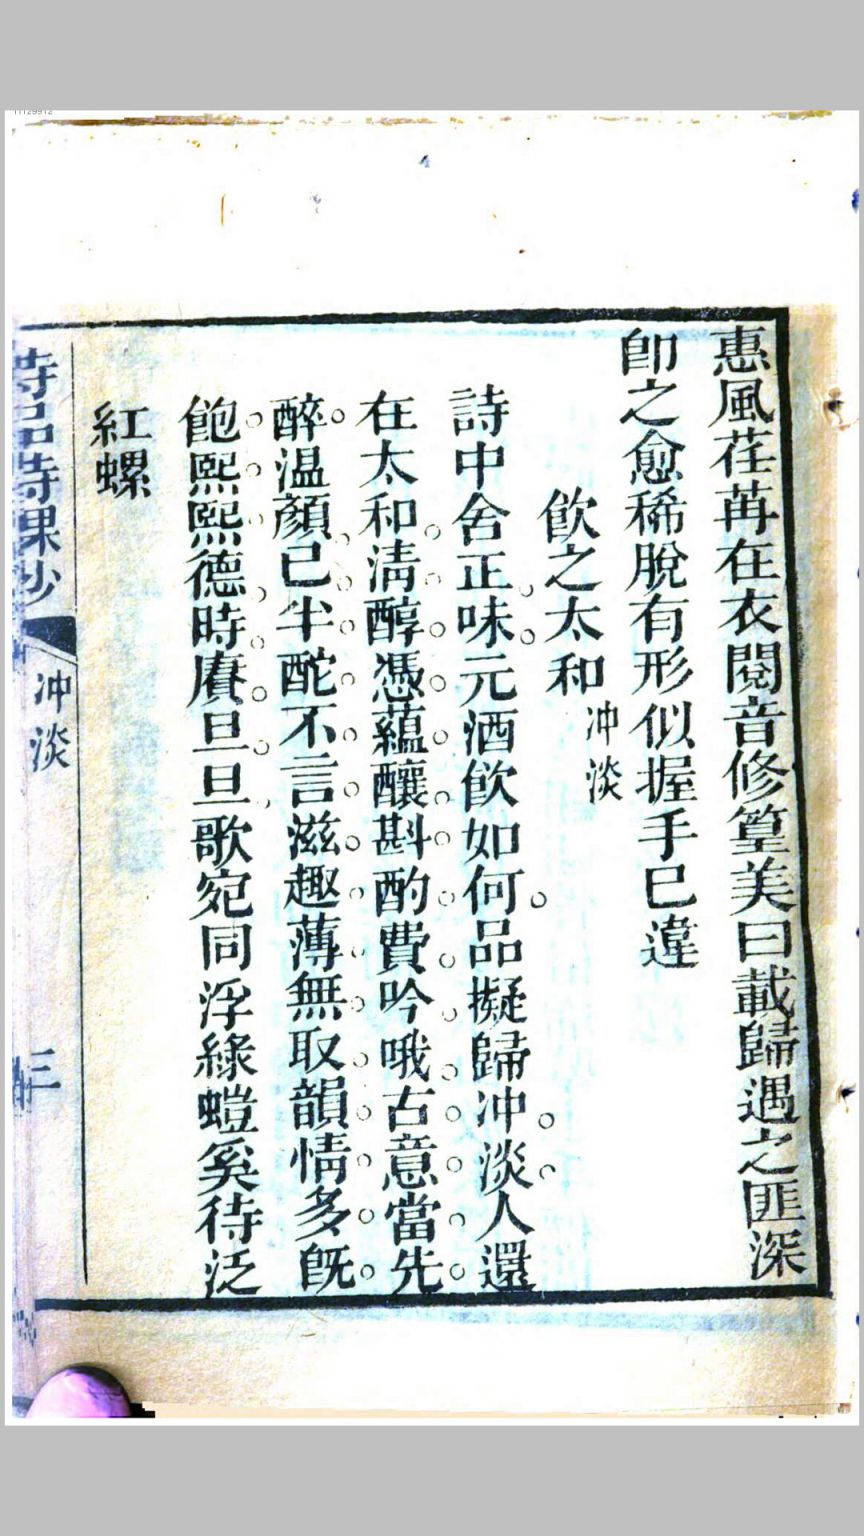 惠風荏苒在衣閱音修篁美曰載歸遇之匪深
卽之愈稀脫有形似握手已違
飲之太和 冲淡
詩中含正味元酒飲如何品擬歸冲淡人還
在太和淸醇憑蘊釀斟酌費吟哦古意當先
醉温顏已半酡不言滋趣薄無取韻情多旣
飽熙熙德時賡旦旦歌宛同浮綠螘奚待泛
紅螺
詩品詩課鈔
冲淡
三